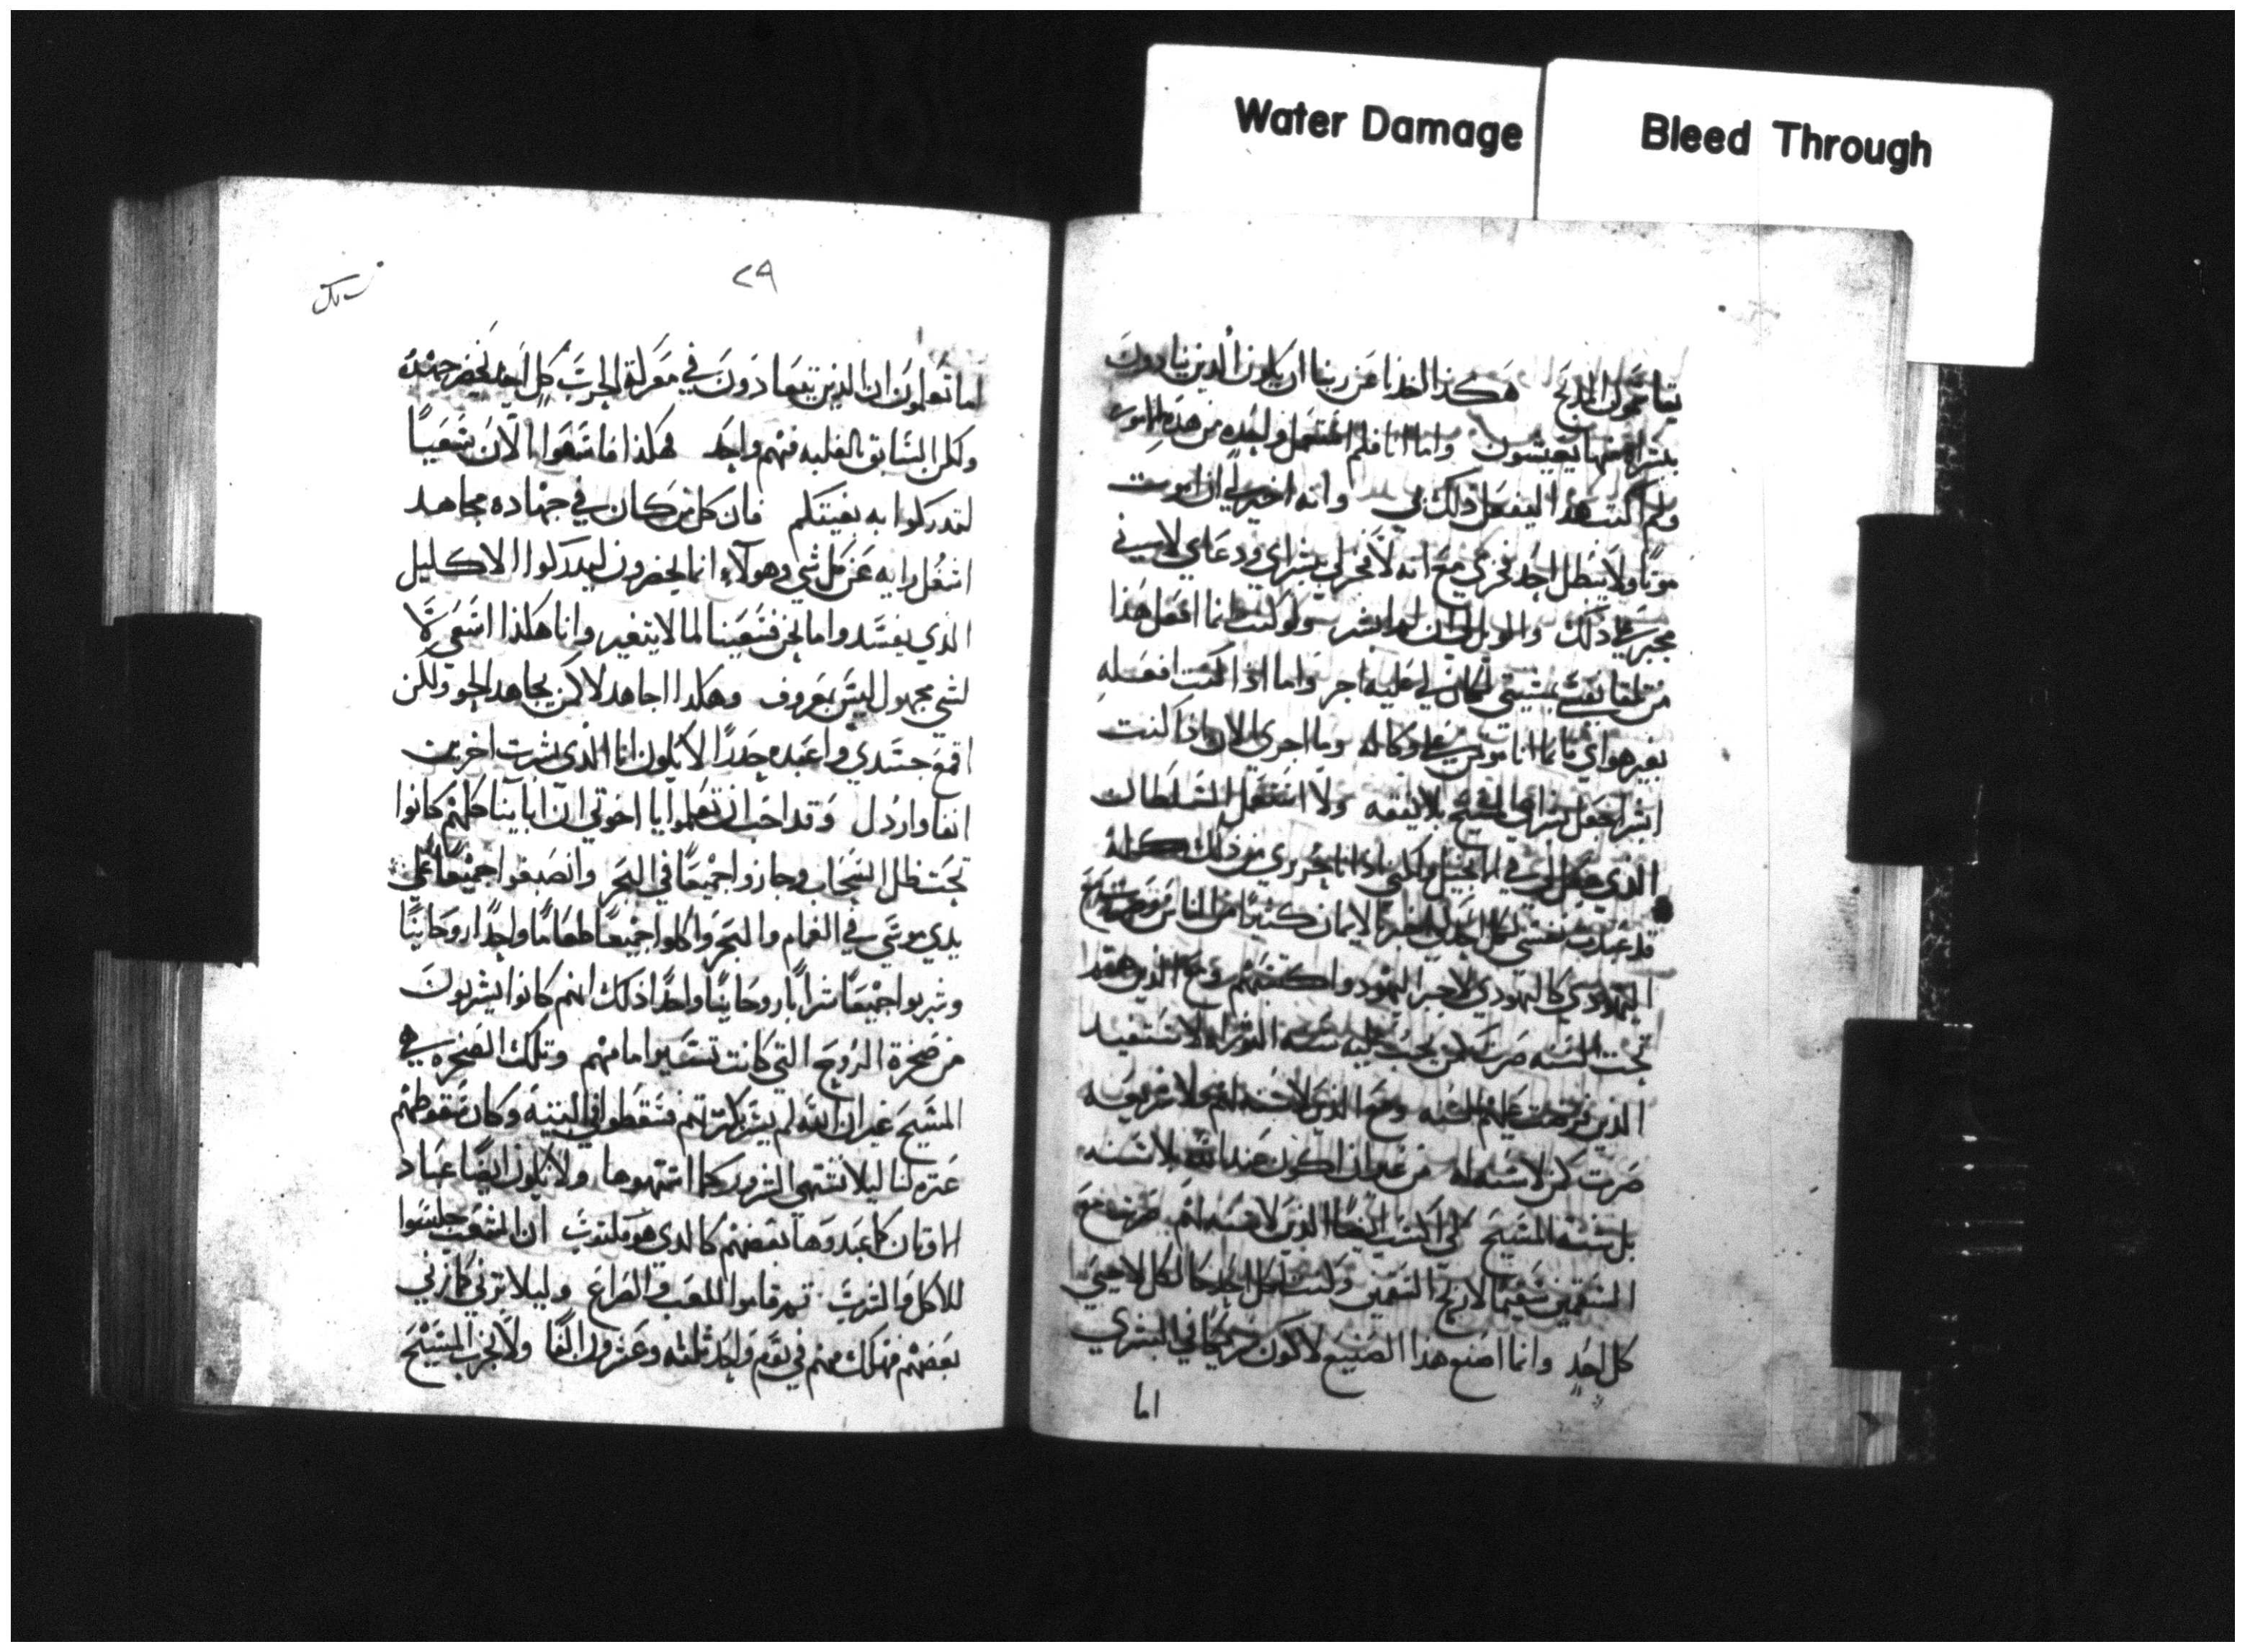 Water Damage
Bleed Through
هكذا اخذنا عن ربنا ان يكون الذين ينادون
يعيشون واما انا فلم استعمل واحده من هذه الامور
ولم اكتب هذا ليفعل ذلك بي وانه اخير لي ان اموت
موتا ولا يبطل احد فخري مع انه لا فخر لي
ذلك والويل لي ان لم ابشر ولو كنت انما افعل هذا
من تلقا نفسي بمشيتي لكان لي عليه اجر واما اذا كنت افعله
بغير هواي فانما انا موتمن على وكاله وما اجري الان اذا كنت
ابشر اجعل بشراي المسيح بلا نفقه ولا استعمل السلطان
الذي جعل لي في الانجيل ولكني اذ انا بحرري من ذلك كله
قد عبدت نفسي لكل احد الايمان كثيرا من الناس
اليهودي كاليهودي لاجبر اليهود ومع الذين هم
تحت السنه صرت كمن يجب عليه سنة التوراه لاستفيد
الذين تحت السنه ومع الذين لا سنه لهم
صرت كمن لا سنه له من غير ان اكون عند الله بلا سنه
بل بسنة المسيح لكي اكتسب ايضا الذين لا سنه لهم صرت مع
السقمين سقيما لاربح السقمين وكنت لكل احد كالكل لاحيي
كل احد وانما اصنع هذا الصنيع لاكون شريكا في البشري
اما
٢٩
اما تعلمون ان الذين يتعادون في معركة الحرب كل احد يحضر جهده
ولكن السابق بالغلبه فيهم واحد هكذا فاسعوا الان سعيا
لتدركوا به بغيتكم فان كل من كان في جهاده مجاهد
اشغل رايه عن كل شي وهولاء انما يحضرون ليدركوا الاكليل
الذي يفسد واما نحن فسعينا لما لا يتغير وانا هكذا اسعى لا
لشي مجهول ليس بمعروف وهكذا اجاهد لا كمن يجاهد الجو ولكن
اقمع جسدي واعبده حذرا لا اكون انا الذي بشرت اخرين
انفا وارذل وقد احب ان تعلموا يا اخوتي ان اباينا كلهم كانوا
تحت ظل السحاب وجازوا جميعا في البحر وانصبغوا جميعا على
يدي موسى في الغمام والبحر واكلوا جميعا طعاما واحدا روحانيا
وشربوا جميعا شرابا روحانيا واحدا ذلك انهم كانوا يشربون
من صخرة الروح التي كانت تسير امامهم وتلك الصخره هي
المسيح غير ان الله لم يسر بكثرتهم فسقطوا في البريه وكان سقوطهم
عبره لنا ليلا نشتهي الشرور كما اشتهوها ولا نكون ايضا عباد
الاوثان كما عبدوها بعضهم كالذي هو مكتوب ان الشعب جلسوا
للاكل والشرب ثم قاموا للعب والصراع وليلا نزني كما زنى
بعضهم فهلك منهم في يوم واحد ثلثه وعشرون الفا ولا نجرب المسيح